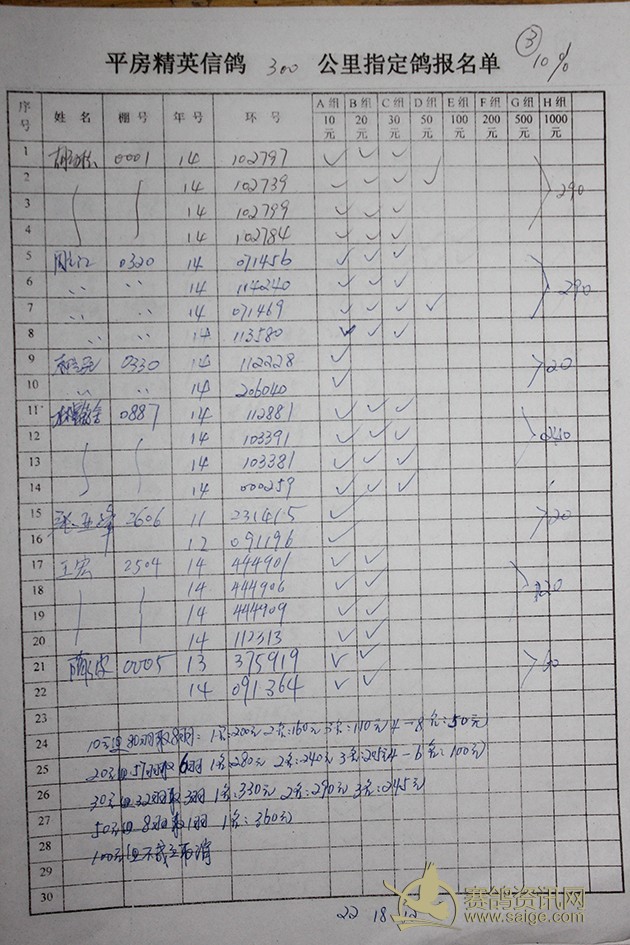 ③
10%
平房精英信鸽 300 公里指定鸽报名单
序号 姓名 棚号 年号 环号 A组10元 B组20元 C组30元 D组50元 E组100元 F组200元 G组500元 H组1000元
1 0001 14 102797 ✓ ✓ ✓
2 14 102739 ✓ ✓ ✓ ✓ 290
3 14 102799 ✓ ✓ ✓
4 14 102784 ✓ ✓ ✓
5 0320 14 071456 ✓ ✓ ✓
6 〃 〃 14 114240 ✓ ✓ ✓ 290
7 〃 〃 14 071469 ✓ ✓ ✓ ✓
8 〃 〃 14 113580 ✓ ✓ ✓
9 0330 14 112228 ✓ 20
10 〃 〃 14 206040 ✓
11 0887 14 112881 ✓ ✓ ✓
12 14 103391 ✓ ✓ ✓ 240
13 14 103381 ✓ ✓ ✓
14 14 000259 ✓ ✓ ✓
15 2606 11 231415 ✓ 20
16 12 091196 ✓
17 王宏 2504 14 444901 ✓ ✓
18 14 444906 ✓ ✓ 120
19 14 444909 ✓ ✓
20 14 112313 ✓ ✓
21 0005 13 375919 ✓ ✓ 60
22 14 091364 ✓ ✓
23
24 10元组80羽取8羽:1名:200元 2名:160元 3名:110元 4-8名:50元
25 20元组57羽取6羽 1名:280元 2名:240元 3名:205元 4-6名:100元
26 30元组32羽取3羽 1名:330元 2名:290元 3名:245元
27 50元组8羽取1羽 1名:360元
28 100元组不成立取消
29
30
22 18 12
赛鸽资讯网
www.saige.com